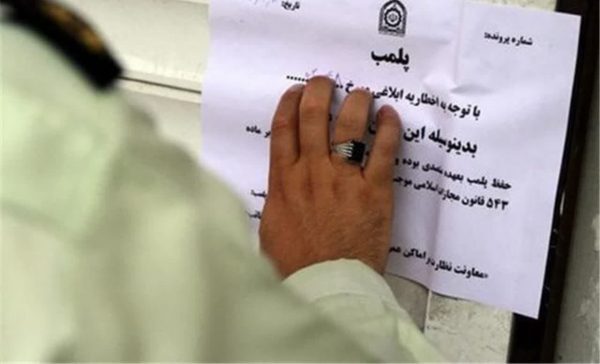 تاریخ:
شماره پرونده:
پلمب
با توجه به اخطاریه ابلاغی
بدینوسیله این
حفظ پلمب بعهده متصدی بوده و بر ماده
۵۴۳ قانون مجازات اسلامی
«معاونت نظارت بر اماکن